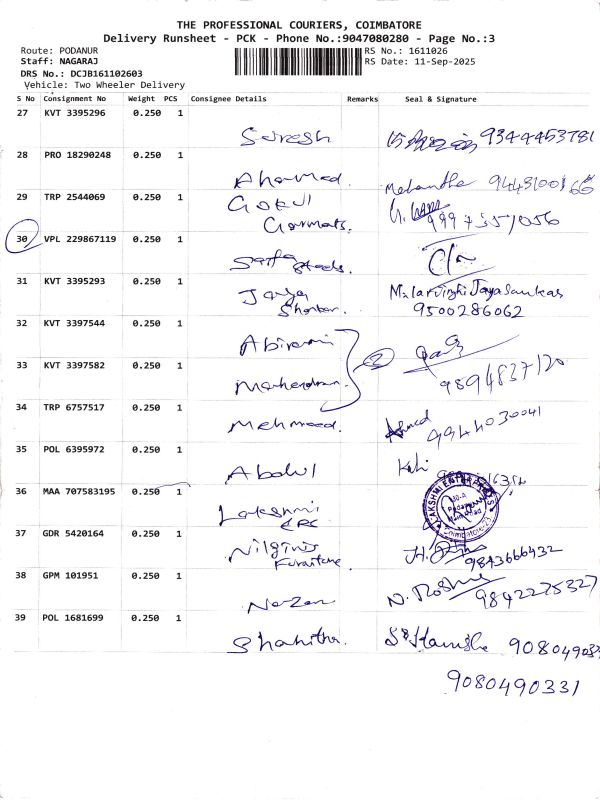 THE PROFESSIONAL COURIERS, COIMBATORE
Delivery Runsheet - PCK - Phone No.:9047080280 - Page No.:3
Route: PODANUR RS No.: 1611026
Staff: NAGARAJ RS Date: 11-Sep-2025
DRS No.: DCJB161102603
Vehicle: Two Wheeler Delivery
S No Consignment No Weight PCS Consignee Details Remarks Seal & Signature
27 KVT 3395296 0.250 1
Suresh 9344453781
28 PRO 18290248 0.250 1
Ahammed. 9443100166
29 TRP 2544069 0.250 1
Gokul
Garments. 9997351056
30 VPL 229867119 0.250 1
31 KVT 3395293 0.250 1
Jaya Malarvizhi Jayasankar
9500286062
32 KVT 3397544 0.250 1
Abirami 2
33 KVT 3397582 0.250 1
Mahendran. 9894837120
34 TRP 6757517 0.250 1
Mehmood. Ahmed 9944030041
35 POL 6395972 0.250 1
Abdul
36 MAA 707583195 0.250 1
Lakshmi LAKSHMI ENTERPRISES
37 GDR 5420164 0.250 1
Nilgiris
Furniture 9843666432
38 GPM 101951 0.250 1
N. Roshni 9842275327
39 POL 1681699 0.250 1
Shahitha. 908049033
9080490331